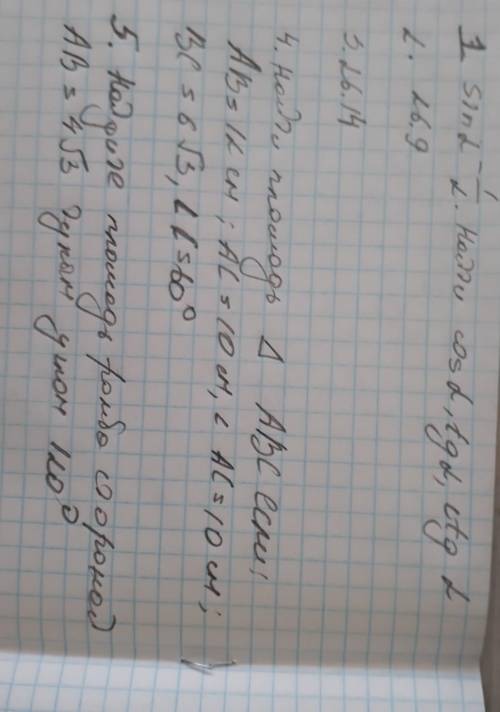 1 sin α = 1/2. Найти cos α, tg α, ctg α
2. 26.9
3. 26.14
4. Найти площадь Δ ABC если;
AB = 12 см; AC = 10 см, AC = 10 см;
BC = 6√3, ∠C = 60°
5. Найдите площадь ромба со стороной
AB = 4√3 углом 120°